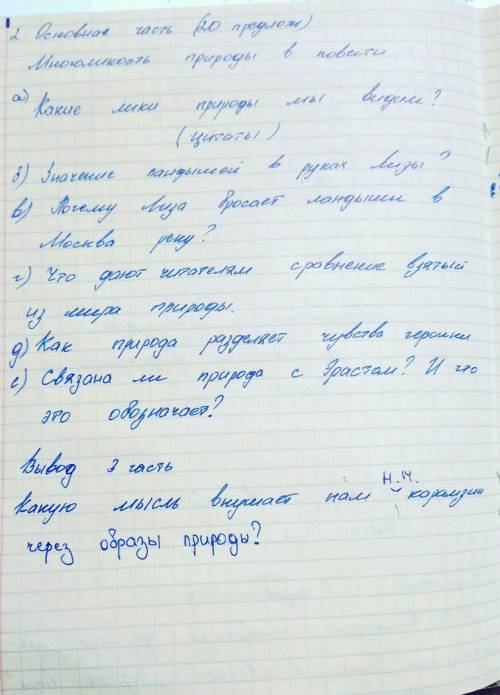 2 Основная часть (20 предлож)
Многоликость природы в повести
а) Какие лики природы мы видим?
(цитаты)
б) Значение ландышей в руках Лизы?
в) Почему Лиза бросает ландыши в
Москва реку?
г) Что дают читателям сравнение взятый
из мира природы.
д) Как природа разделяет чувства героини
е) Связана ли природа с Эрастом? И что
это обозначает?
Вывод 3 часть
Какую мысль внушает нам Н.М. Карамзин
через образы природы?